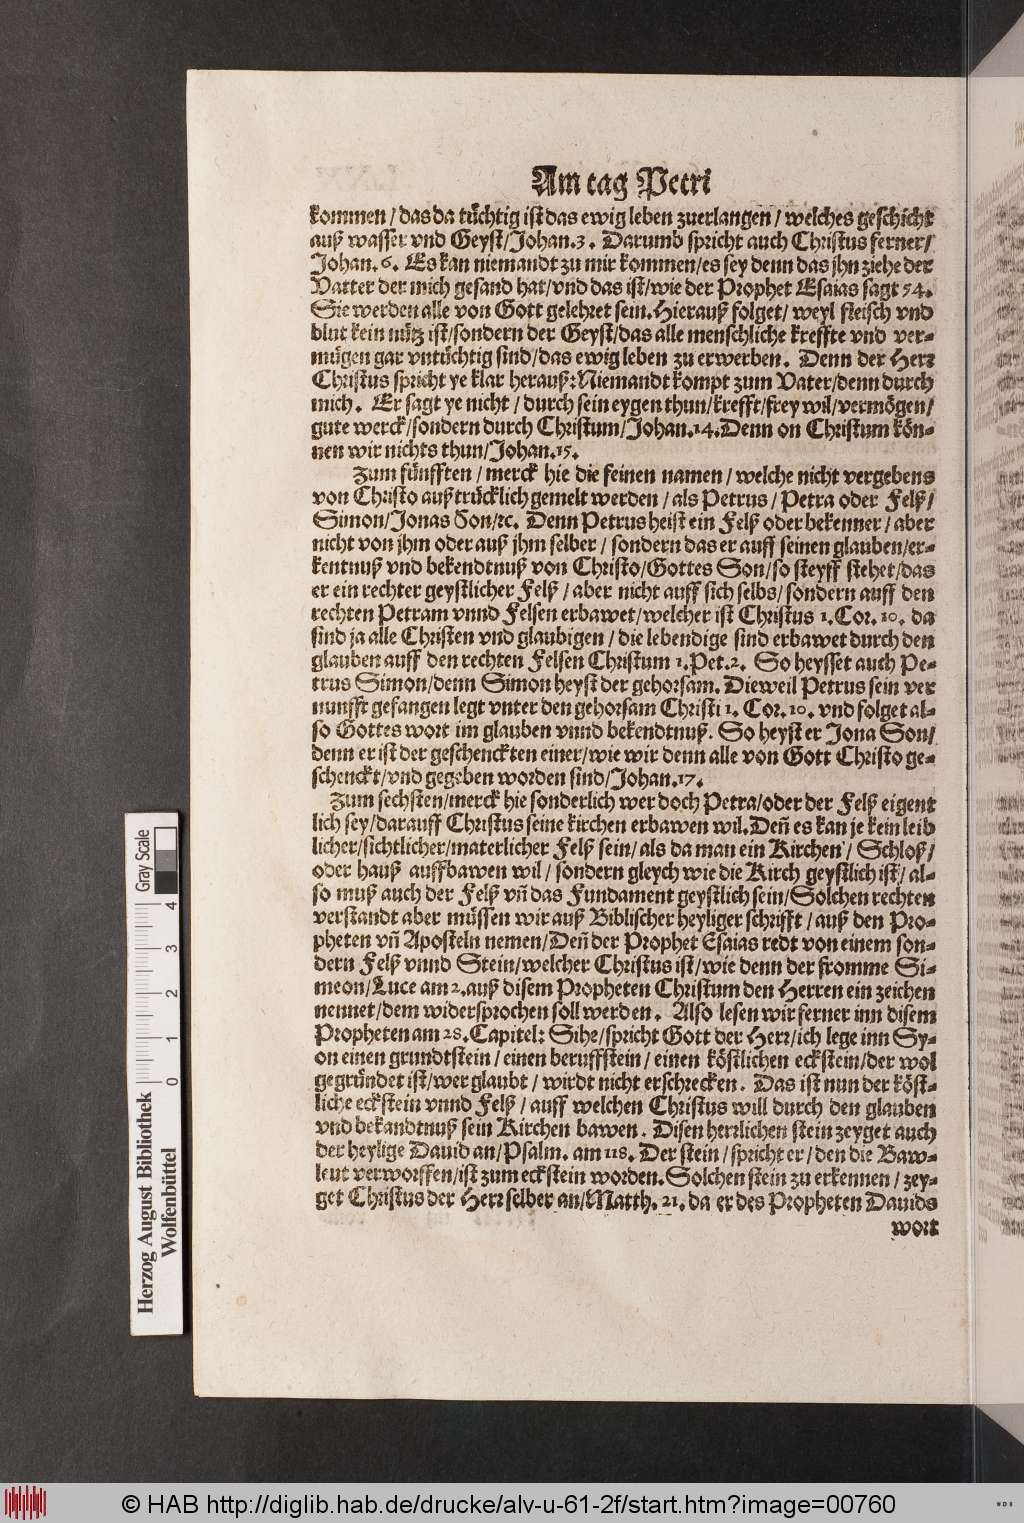 Am tag Petri
kommen / das da tüchtig ist das ewig leben zuerlangen / welches geschicht
auß wasser vnd Geyst/Johan.3. Darumb spricht auch Christus ferner/
Johan. 6. Es kan niemandt zu mir kommen/es sey denn das jhn ziehe der
Vatter der mich gesand hat/vnd das ist/wie der Prophet Esaias sagt 54.
Sie werden alle von Gott gelehret sein. Hierauß folget/ weyl fleisch vnd
blut kein nütz ist/sondern der Geyst/das alle menschliche kreffte vnd ver-
mügen gar vntüchtig sind/das ewig leben zu erwerben. Denn der Herr
Christus spricht ye klar herauß: Niemandt kompt zum Vater/denn durch
mich. Er sagt ye nicht / durch sein eygen thun/krefft/frey wil/vermögen/
gute werck/sondern durch Christum/Johan.14. Denn on Christum kön-
nen wir nichts thun/Johan.15.
Zum fünfften / merck hie die feinen namen / welche nicht vergebens
von Christo außtrücklich gemelt werden / als Petrus / Petra oder Felß/
Simon/Jonas Son/ꝛc. Denn Petrus heist ein Felß oder bekenner / aber
nicht von jhm oder auß jhm selber / sondern das er auff seinen glauben/er-
kentnuß vnd bekendtnuß von Christo/Gottes Son/so steyff stehet/das
er ein rechter geystlicher Felß / aber nicht auff sich selbs/ sondern auff den
rechten Petram vnnd Felsen erbawet/welcher ist Christus 1. Cor. 10. da
sind ja alle Christen vnd glaubigen / die lebendige sind erbawet durch den
glauben auff den rechten Felsen Christum 1. Pet.2. So heysset auch Pe-
trus Simon/denn Simon heyst der gehorsam. Dieweil Petrus sein ver
nunfft gefangen legt vnter den gehorsam Christi 1. Cor. 10. vnd folget al-
so Gottes wort im glauben vnnd bekendtnuß. So heyst er Jona Son/
denn er ist der geschenckten einer/wie wir denn alle von Gott Christo ge-
schenckt/vnd gegeben worden sind/Johan.17.
Zum sechsten/merck hie sonderlich wer doch Petra/oder der Felß eigent
lich sey/darauff Christus seine kirchen erbawen wil. Deñ es kan je kein leib
licher/sichtlicher/materlicher Felß sein/ als da man ein Kirchen / Schloß/
oder hauß auffbawen wil / sondern gleych wie die Kirch geystlich ist/ al-
so muß auch der Felß vñ das Fundament geystlich sein/Solchen rechten
verstandt aber müssen wir auß Biblischer heyliger schrifft / auß den Pro-
pheten vñ Aposteln nemen/Deñ der Prophet Esaias redt von einem son-
dern Felß vnnd Stein/welcher Christus ist/wie denn der fromme Si-
meon/Luce am 2. auß disem Propheten Christum den Herren ein zeichen
nennet/dem widersprochen soll werden. Also lesen wir ferner inn disem
Propheten am 28. Capitel: Sihe/spricht Gott der Herr/ich lege inn Sy-
on einen grundtstein / einen beruffstein / einen köstlichen eckstein/der wol
gegründet ist/wer glaubt / wirdt nicht erschrecken. Das ist nun der köst-
liche eckstein vnnd Felß / auff welchen Christus will durch den glauben
vnd bekandtnuß sein Kirchen bawen. Disen herrlichen stein zeyget auch
der heylige Dauid an/Psalm. am 118. Der stein / spricht er / den die Baw-
leut verworffen/ist zum eckstein worden. Solchen stein zu erkennen / zey-
get Christus der Herr selber an/Matth. 21. da er des Propheten Dauids
wort
Herzog August Bibliothek
Wolfenbüttel
0 1 2 3 4
Gray Scale
© HAB http://diglib.hab.de/drucke/alv-u-61-2f/start.htm?image=00760